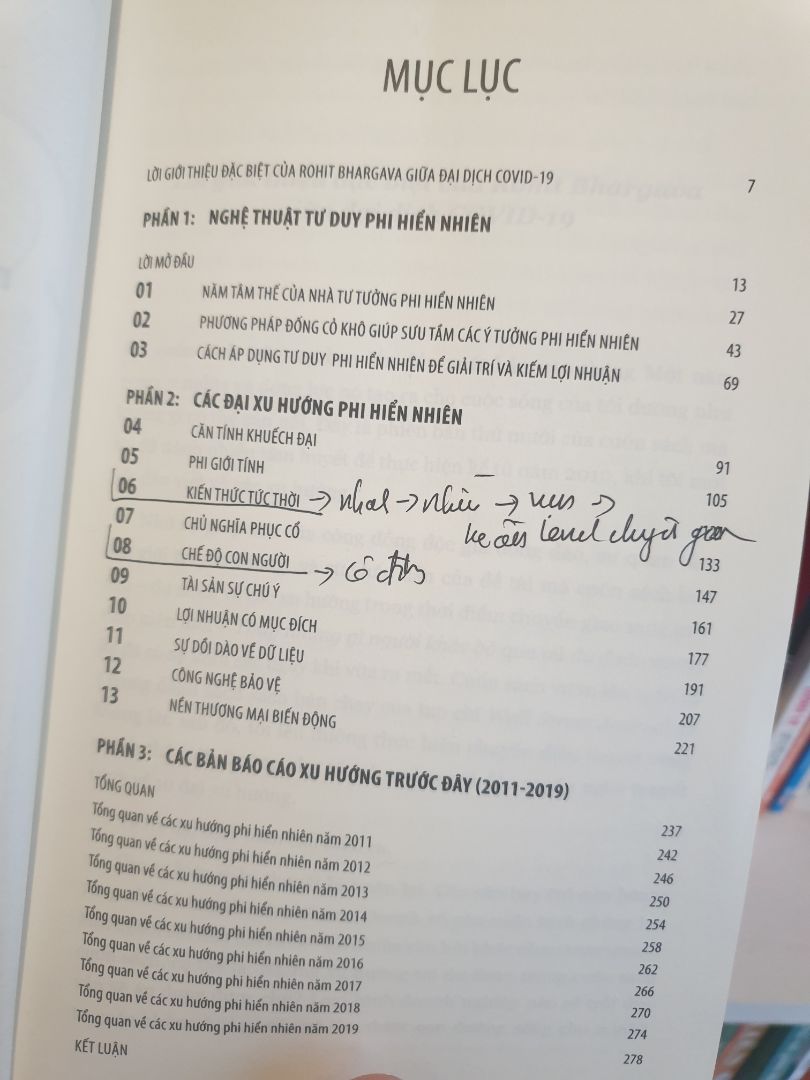 MỤC LỤC
LỜI GIỚI THIỆU ĐẶC BIỆT CỦA ROHIT BHARGAVA GIỮA ĐẠI DỊCH COVID-19 7
PHẦN 1: NGHỆ THUẬT TƯ DUY PHI HIỂN NHIÊN
LỜI MỞ ĐẦU 13
01 NĂM TÂM THẾ CỦA NHÀ TƯ TƯỞNG PHI HIỂN NHIÊN 27
02 PHƯƠNG PHÁP ĐỐNG CỎ KHÔ GIÚP SƯU TẦM CÁC Ý TƯỞNG PHI HIỂN NHIÊN 43
03 CÁCH ÁP DỤNG TƯ DUY PHI HIỂN NHIÊN ĐỂ GIẢI TRÍ VÀ KIẾM LỢI NHUẬN 69
PHẦN 2: CÁC ĐẠI XU HƯỚNG PHI HIỂN NHIÊN
04 CĂN TÍNH KHUẾCH ĐẠI 91
05 PHI GIỚI TÍNH 105
06 KIẾN THỨC TỨC THỜI → → nhiều → →
level
07 CHỦ NGHĨA PHỤC CỔ 133
08 CHẾ ĐỘ CON NGƯỜI → 147
09 TÀI SẢN SỰ CHÚ Ý 161
10 LỢI NHUẬN CÓ MỤC ĐÍCH 177
11 SỰ DỒI DÀO VỀ DỮ LIỆU 191
12 CÔNG NGHỆ BẢO VỆ 207
13 NỀN THƯƠNG MẠI BIẾN ĐỘNG 221
PHẦN 3: CÁC BẢN BÁO CÁO XU HƯỚNG TRƯỚC ĐÂY (2011-2019)
TỔNG QUAN 237
Tổng quan về các xu hướng phi hiển nhiên năm 2011 242
Tổng quan về các xu hướng phi hiển nhiên năm 2012 246
Tổng quan về các xu hướng phi hiển nhiên năm 2013 250
Tổng quan về các xu hướng phi hiển nhiên năm 2014 254
Tổng quan về các xu hướng phi hiển nhiên năm 2015 258
Tổng quan về các xu hướng phi hiển nhiên năm 2016 262
Tổng quan về các xu hướng phi hiển nhiên năm 2017 266
Tổng quan về các xu hướng phi hiển nhiên năm 2018 270
Tổng quan về các xu hướng phi hiển nhiên năm 2019 274
KẾT LUẬN 278